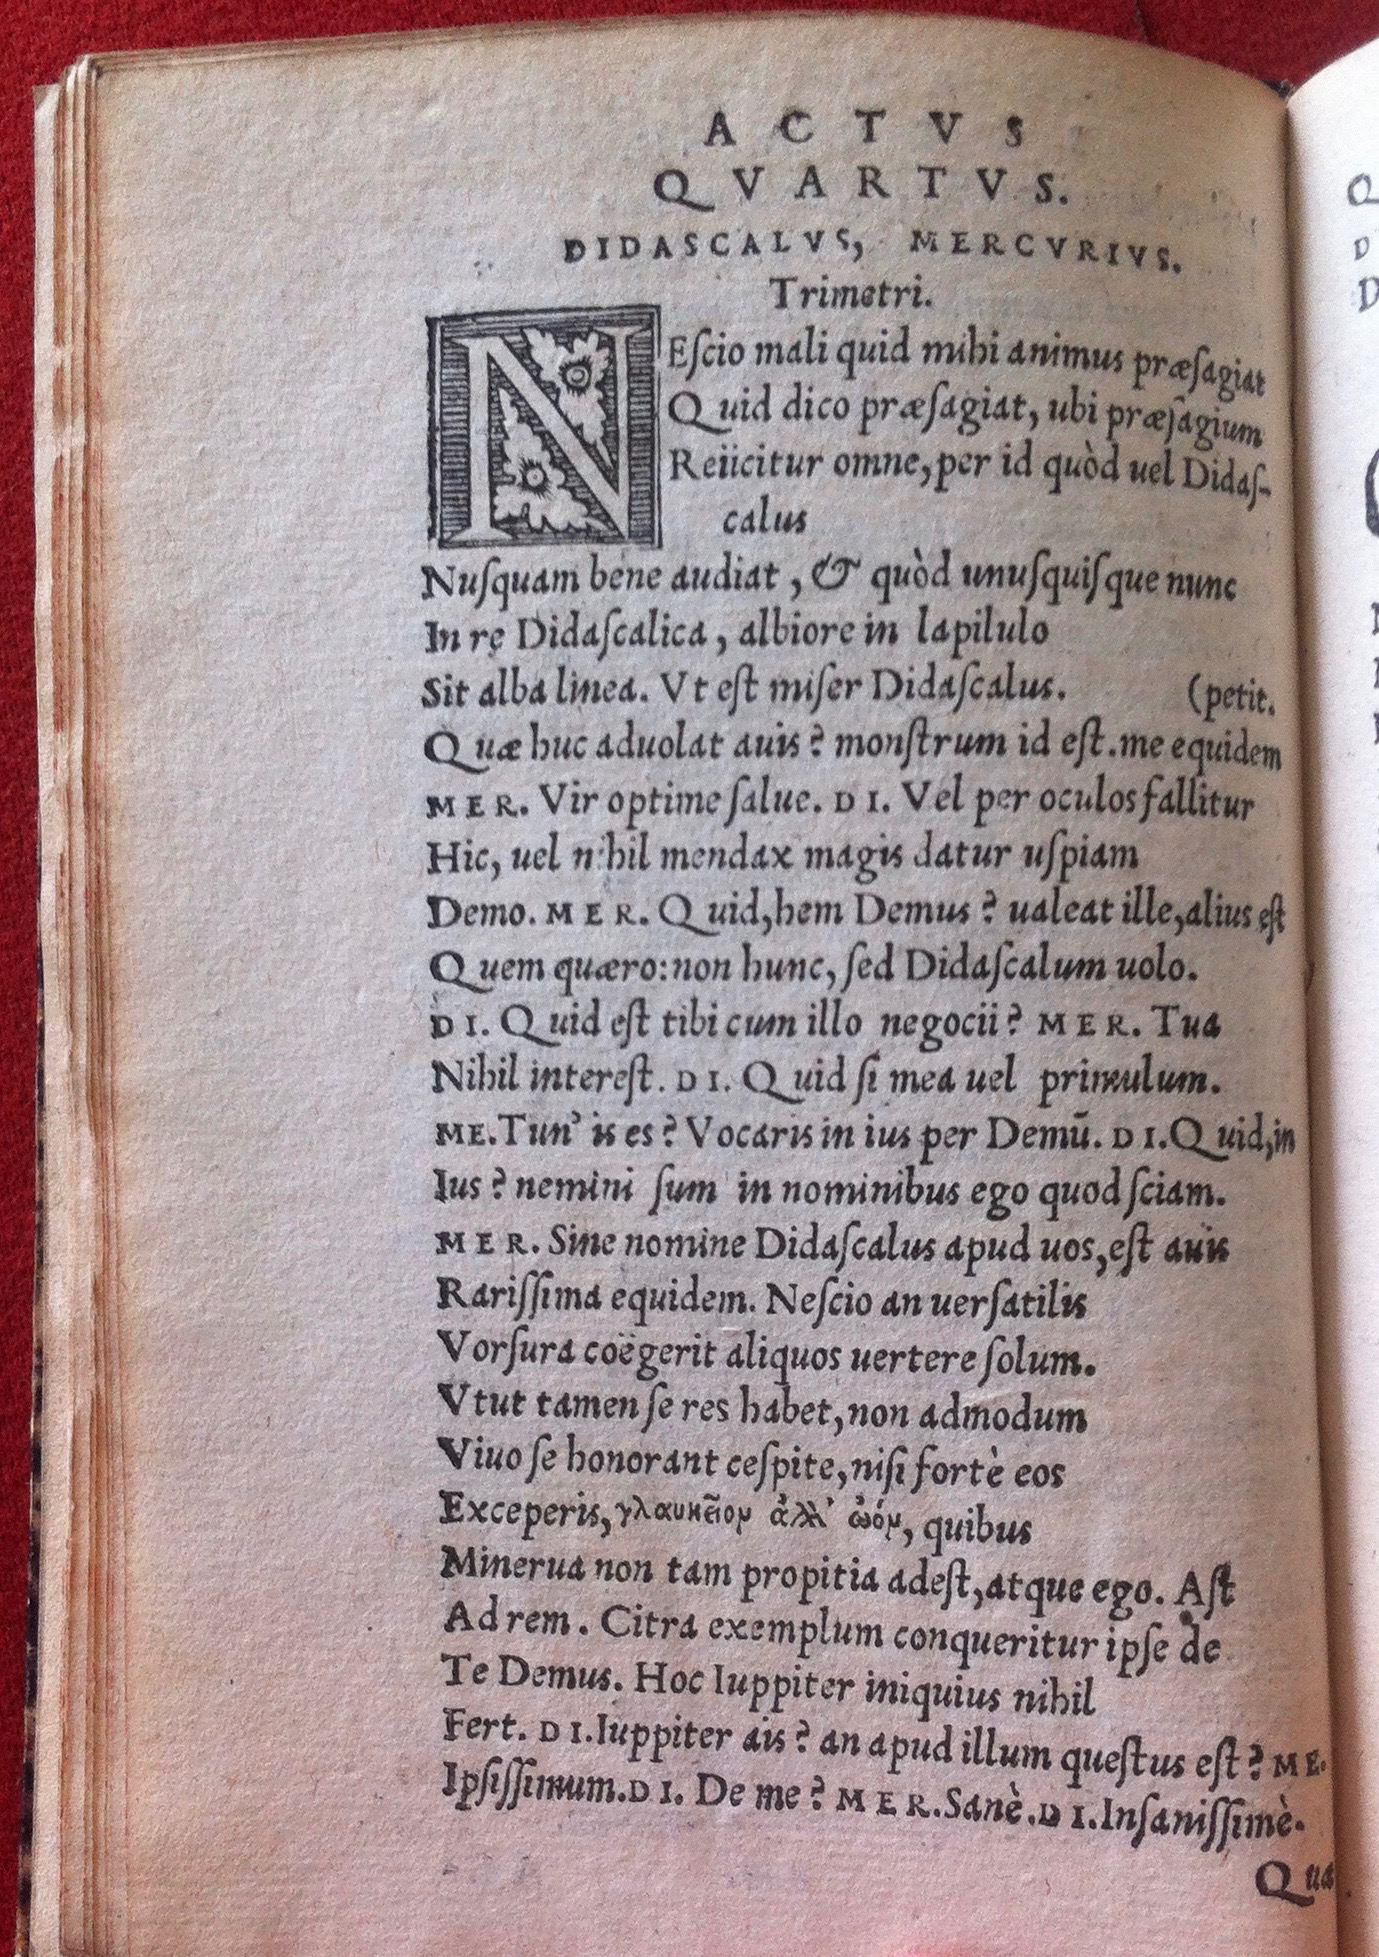 ACTVS
QVARTVS.
DIDASCALVS, MERCVRIVS.
Trimetri.
NEſcio mali quid mihi animus præſagiat
Quid dico præſagiat, ubi præſagium
Reiicitur omne, per id quòd uel Didaſ-
calus
Nuſquam bene audiat, & quòd unuſquiſque nunc
In re Didaſcalica, albiore in lapilulo
Sit alba linea. Vt eſt miſer Didaſcalus. (petit.
Quæ huc aduolat auis? monſtrum id eſt. me equidem
MER. Vir optime ſalue. DI. Vel per oculos fallitur
Hic, uel nihil mendax magis datur uſpiam
Demo. MER. Quid, hem Demus? ualeat ille, alius eſt
Quem quæro: non hunc, ſed Didaſcalum uolo.
DI. Quid eſt tibi cum illo negocii? MER. Tua
Nihil intereſt. DI. Quid ſi mea uel primulum.
ME. Tun' is es? Vocaris in ius per Demū. DI. Quid, in
Ius? nemini ſum in nominibus ego quod ſciam.
MER. Sine nomine Didaſcalus apud uos, eſt auis
Rariſſima equidem. Neſcio an uerſatilis
Vorſura coëgerit aliquos uertere ſolum.
Vtut tamen ſe res habet, non admodum
Viuo ſe honorant ceſpite, niſi fortè eos
Exceperis, γλαυκεῖον ἀλλ' ὠόν, quibus
Minerua non tam propitia adeſt, atque ego. Aſt
Ad rem. Citra exemplum conqueritur ipſe de
Te Demus. Hoc Iuppiter iniquius nihil
Fert. DI. Iuppiter ais? an apud illum queſtus eſt? ME.
Ipſiſſimum. DI. De me? MER. Sanè. DI. Inſaniſſimè.
Qua